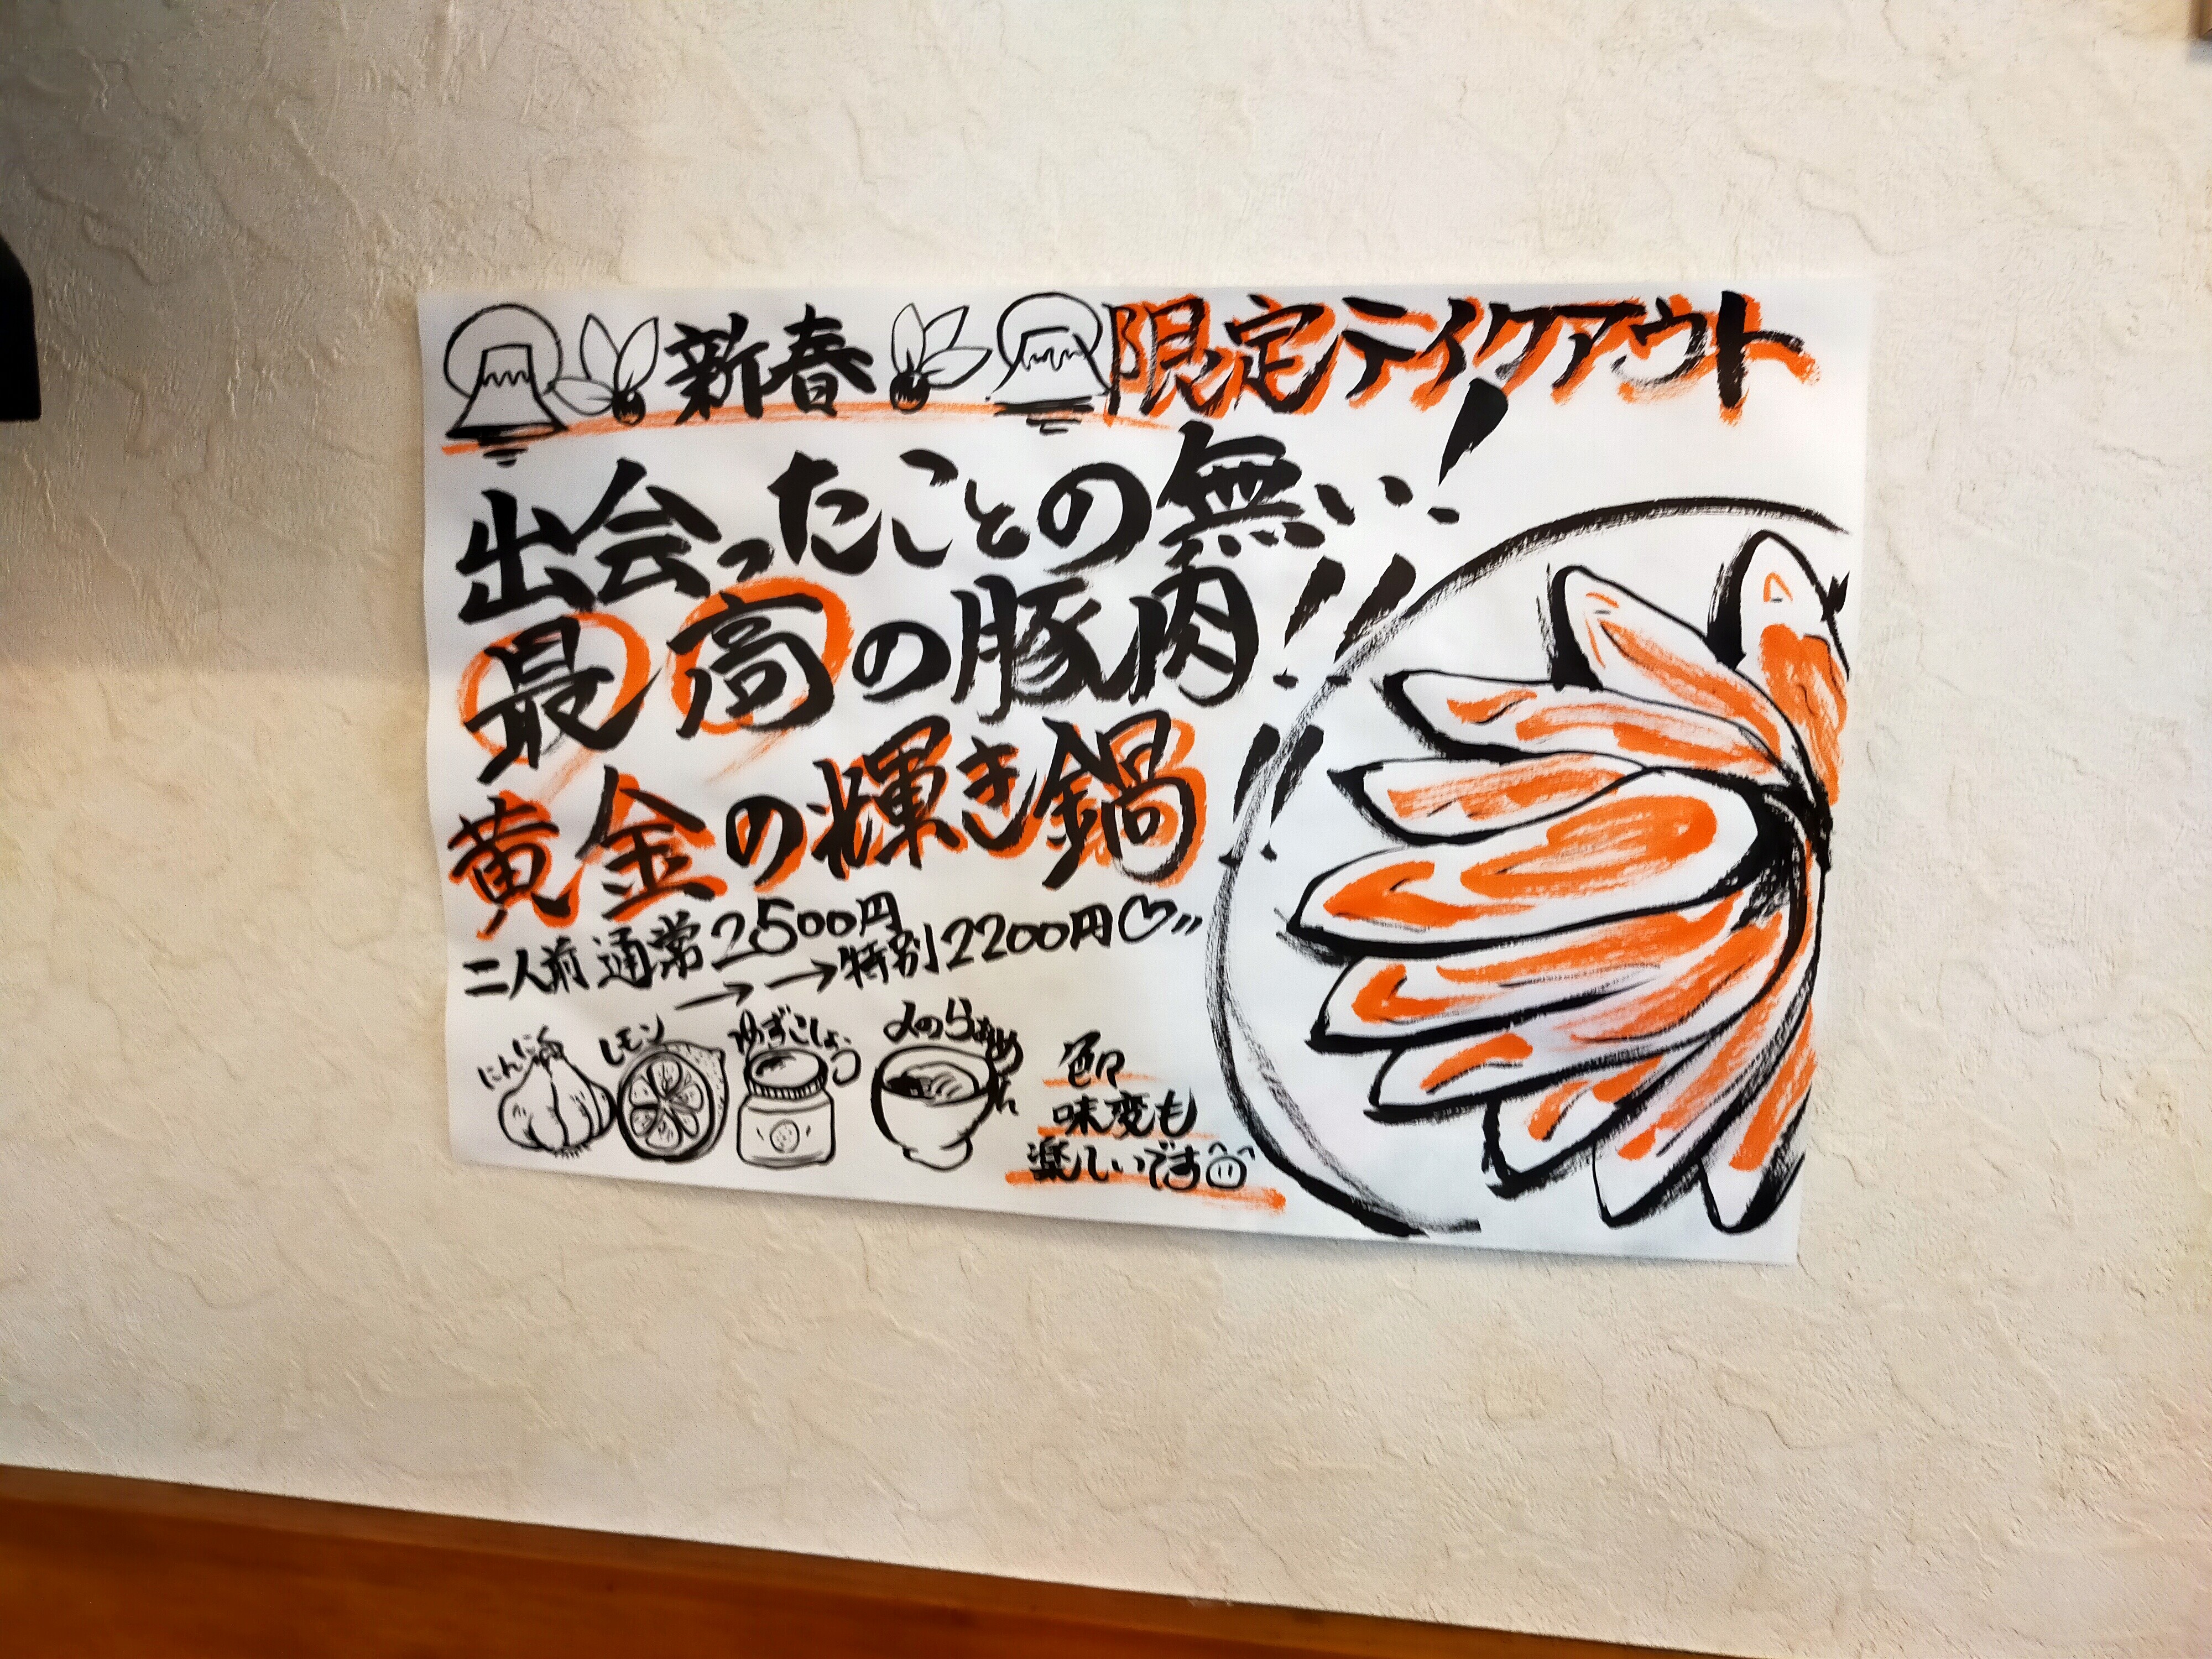 新春 限定テイクアウト
出会ったことの無い!
最高の豚肉!!
黄金の輝き鍋!!
二人前 通常2500円
→→特別2200円♡
にんにく レモン ゆずこしょう 〆のらぁめん
味変も
楽しいです